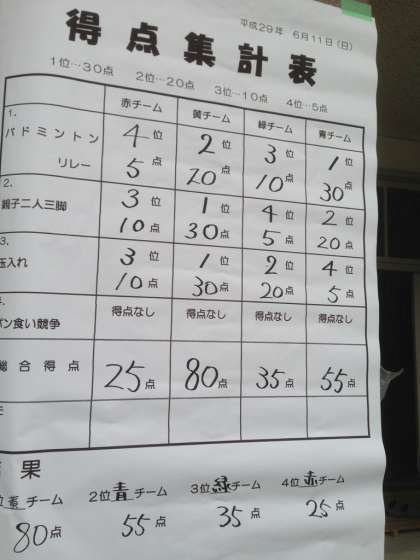 平成29年 6月11日(日)
得点集計表
1位…30点 2位…20点 3位…10点 4位…5点
赤チーム 黄チーム 緑チーム 青チーム
1.
バドミントン 4位 2位 3位 1位
リレー 5点 20点 10点 30点
2.
親子二人三脚 3位 1位 4位 2位
10点 30点 5点 20点
3.
玉入れ 3位 1位 2位 4位
10点 30点 20点 5点
パン食い競争 得点なし 得点なし 得点なし 得点なし
総合得点 25点 80点 35点 55点
果
位黄チーム 2位青チーム 3位緑チーム 4位赤チーム
80点 55点 35点 25点